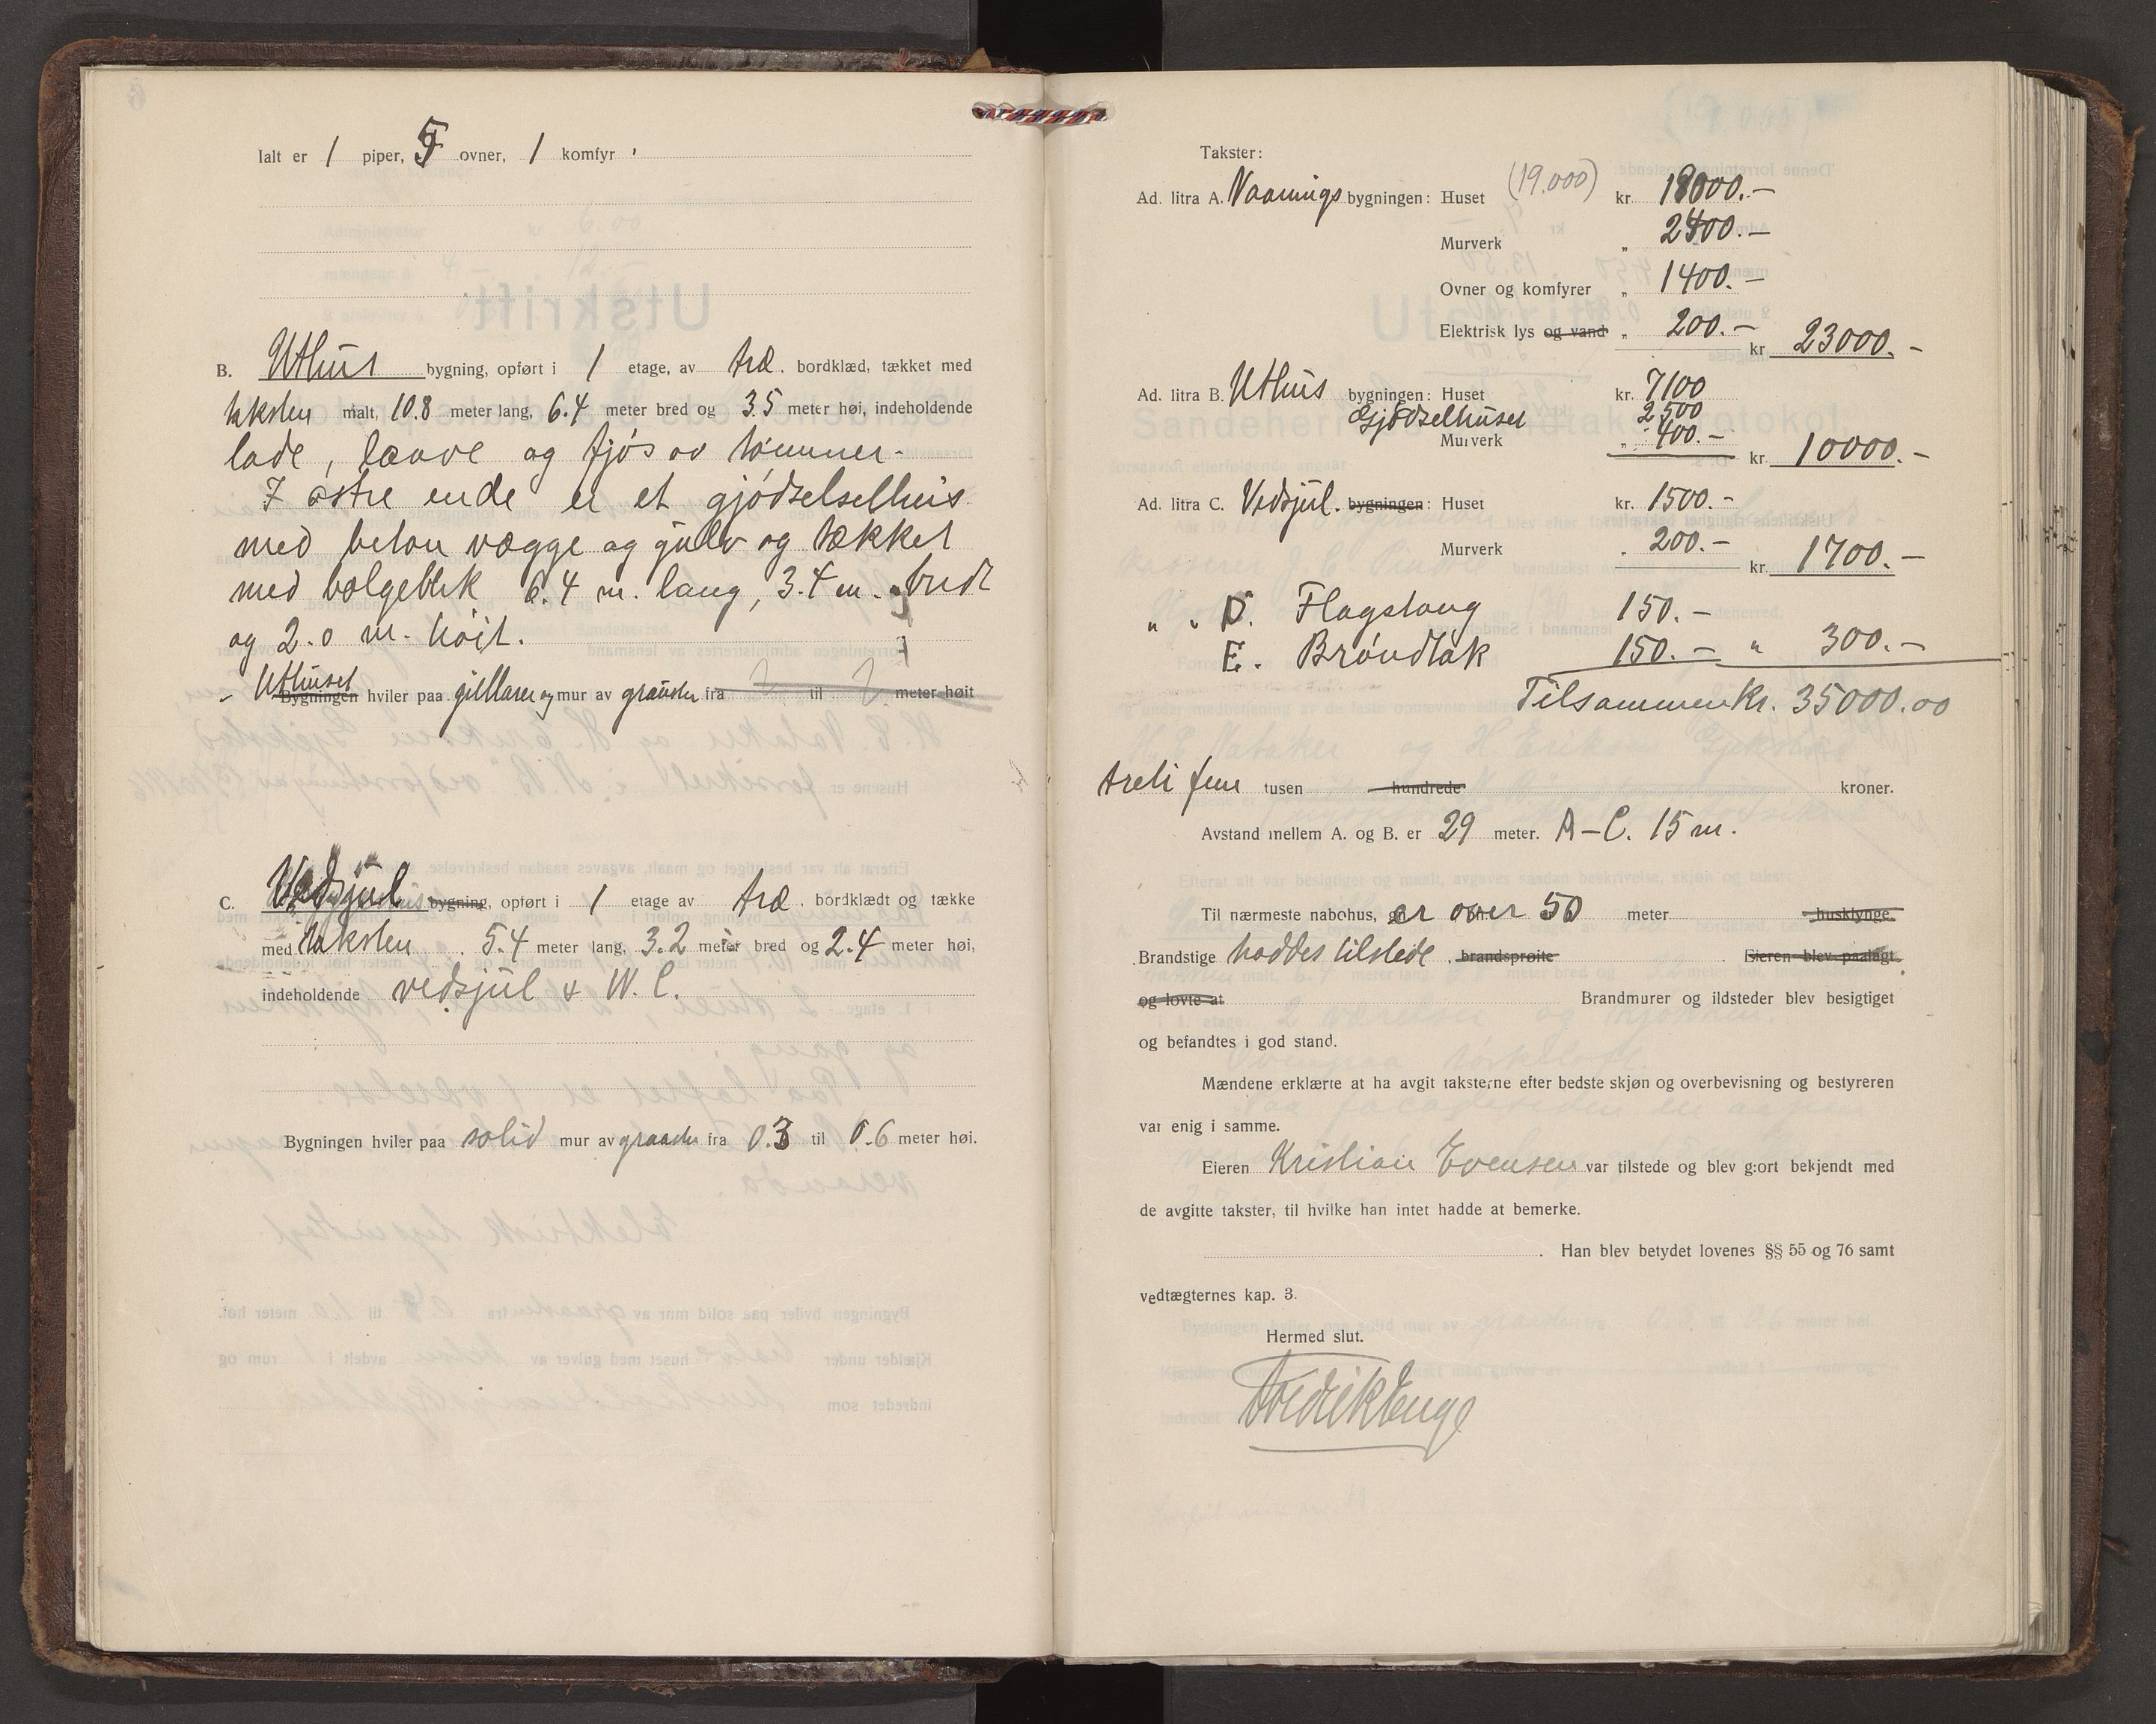 Ialt er 1 piper, 5 ovner, 1 komfyr
B. Uthus bygning, opført i 1 etage, av træ. bordklæd, tækket med
taksten malt, 10.8 meter lang, 6.4 meter bred og 3.5 meter høi, indeholdende
lade, laave og fjøs av tømmer.
I østre ende er et gjødselselhus
med beton vægge og gulv og tækket
med bølgeblik 6.4 m. lang, 3.4 m. bredt
og 2.0 m. høit.
Uthuset
Bygningen hviler paa og mur av graasten fra til meter høit
C. Vedsjul bygning, opført i 1 etage av træ. bordklædt og tække
med taksten 5.4 meter lang, 3.2 meter bred og 2.4 meter høi,
indeholdende vedsjul & W. C.
Bygningen hviler paa solid mur av graasten fra 0.3 til 0.6 meter høi.
Takster:
Ad. litra A. Vaanings bygningen: Huset (19.000) kr. 18000.-
Murverk „ 2400.-
Ovner og komfyrer „ 1400.-
Elektrisk lys og vand „ 200.- kr. 23000.-
Ad. litra B. Uthus bygningen: Huset kr. 7100
Gjødselhuset 2500
Murverk „ 400.- kr. 10000.-
Ad. litra C. Vedsjul. bygningen: Huset kr. 1500.-
Murverk „ 200.- kr. 1700.-
„ „ D. Flagstang 150.-
E. Brøndlok 150.- „ 300.-
Tilsammen Kr. 35000.00
treti fem tusen hundrede kroner.
Avstand mellem A. og B. er 29 meter. A-C. 15 m.
Til nærmeste nabohus, er over 50 meter husklynge
Brandstige haddes tilstede, brandsprøite. Eieren blev paalagt
og lovte at Brandmurer og ildsteder blev besigtiget
og befandtes i god stand.
Mændene erklærte at ha avgit taksterne efter bedste skjøn og overbevisning og bestyreren
var enig i samme.
Eieren Kristian Evensen var tilstede og blev gjort bekjendt med
de avgitte takster, til hvilke han intet hadde at bemerke.
Han blev betydet lovenes §§ 55 og 76 samt
vedtægternes kap. 3.
Hermed slut.